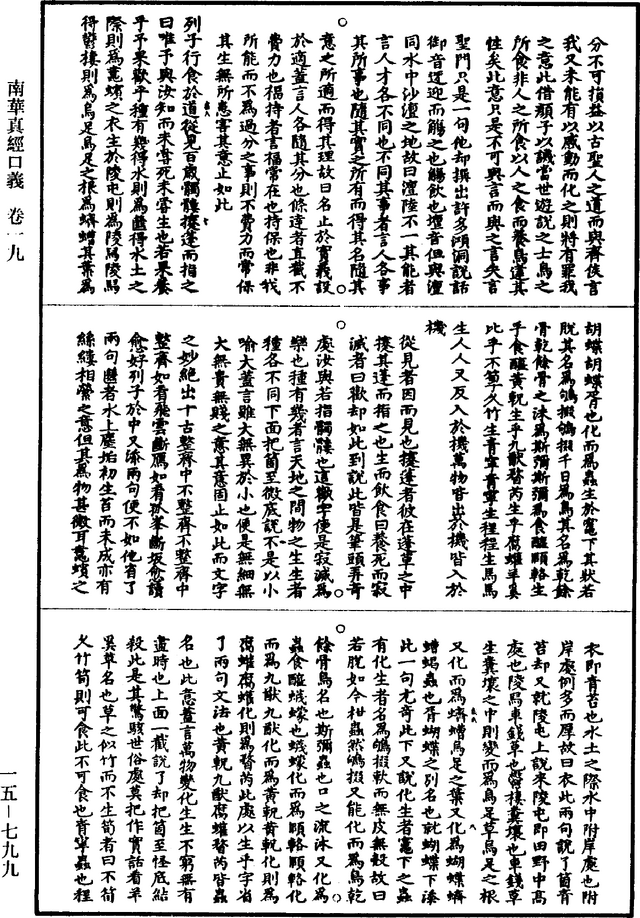 南華真經口義　卷一九
一五—七九九
分不可損益以古聖人之道而與齊侯言
我又未能有以感動而化之則將有罪我
之意此借顏子以譏當世遊說之士鳥之
所食非人之所食以人之食而養鳥違其
性矣此意只是不可與言而與之言失言
聖門只是一句他却撰出許多鴻洞說話
御音迓迎而觴之也觴飲也壇音但與澶
同水中沙澶之地故曰澶陸不一其能者
言人才各不同也不同其事者言人各事
其所事也隨其實之所有而得其名隨其
意之所適而得其理故曰名止於實義設
於適蓋言人各隨其分也條達者直截不
費力也福持者言福常在也持保也非我
所能而不為過分之事則不費力而常保
其生無所患害其意止如此
列子行食於道從見百歲髑髏攓蓬而指之
曰唯予與汝知而未嘗死未嘗生也若果養
乎予果歡乎種有幾得水則為㡭得水土之
際則為蠹蠙之衣生於陵屯則為陵舃陵舃
得鬱棲則為烏足烏足之根為蠐螬其葉為
胡蝶胡蝶胥也化而為蟲生於竈下其狀若
脫其名為鴝掇鴝掇千日為鳥其名為乾餘
骨乾餘骨之沫為斯彌斯彌為食醯頤輅生
乎食醯黃軦生乎九猷瞀芮生乎腐蠸羊奚
比乎不箰久竹生青寧青寧生程程生馬馬
生人人又反入於機萬物皆出於機皆入於
機
從見者因而見也攓蓬者彼在蓬草之中
攓其蓬而指之也生而飲食曰養死而寂
滅者曰歡却如此到說此皆是筆頭弄奇
處汝與若指髑髏也這歡字便是寂滅為
樂也種有幾者言天地之間物之生生者
種各不同下面把箇至微底說不是以小
喻大蓋言雖大無異於小也便是無細無
大無貴無賤之意其意固止如此而文字
之妙絕出十古整齊中不整齊不整齊中
整齊如看飛雲斷鴈如看孤峯斷坂愈讀
愈好列子於中又添兩句便不如他省了
兩句㡭者水上塵垢初生苔而未成亦有
絲縷相縈之意但其為物甚微耳蠹蠙之
衣即青苔也水土之際水中附岸處也附
岸處例多而厚故曰衣此兩句說了箇青
苔却又就陵屯上說來陵屯即田野中高
處也陵舃車錢草也鬱棲糞壤也車錢草
生糞壤之中則變而為烏足草烏足之根
又化而為蠐螬烏足之葉又化為蝴蝶蠐
螬蝎蟲也胥蝴蝶之別名也就蝴蝶下湊
此一句尤奇此下又說化生者竈下之蟲
有化生者名為鴝掇軟而無皮無殼故曰
若脫如今柑蟲然鴝掇又能化而為鳥乾
餘骨鳥名也斯彌蟲也口之流沫又化為
蟲食醯蠛蠓也蠛蠓化而為頤輅頤輅化
而為九猷九猷化而為黃軦黃軦化則為
腐蠸腐蠸化則為瞀芮此處以生乎字省
了兩句文法也黃軦九猷腐蠸瞀芮皆蟲
名也此意蓋言萬物變化生生不窮無有
盡時也上面一截說了却把箇至怪底結
殺此是其驚駭世俗處莫把作實話看羊
奚草名也草之似竹而不生筍者曰不筍
久竹筍則可食此不可食也青寧蟲也程